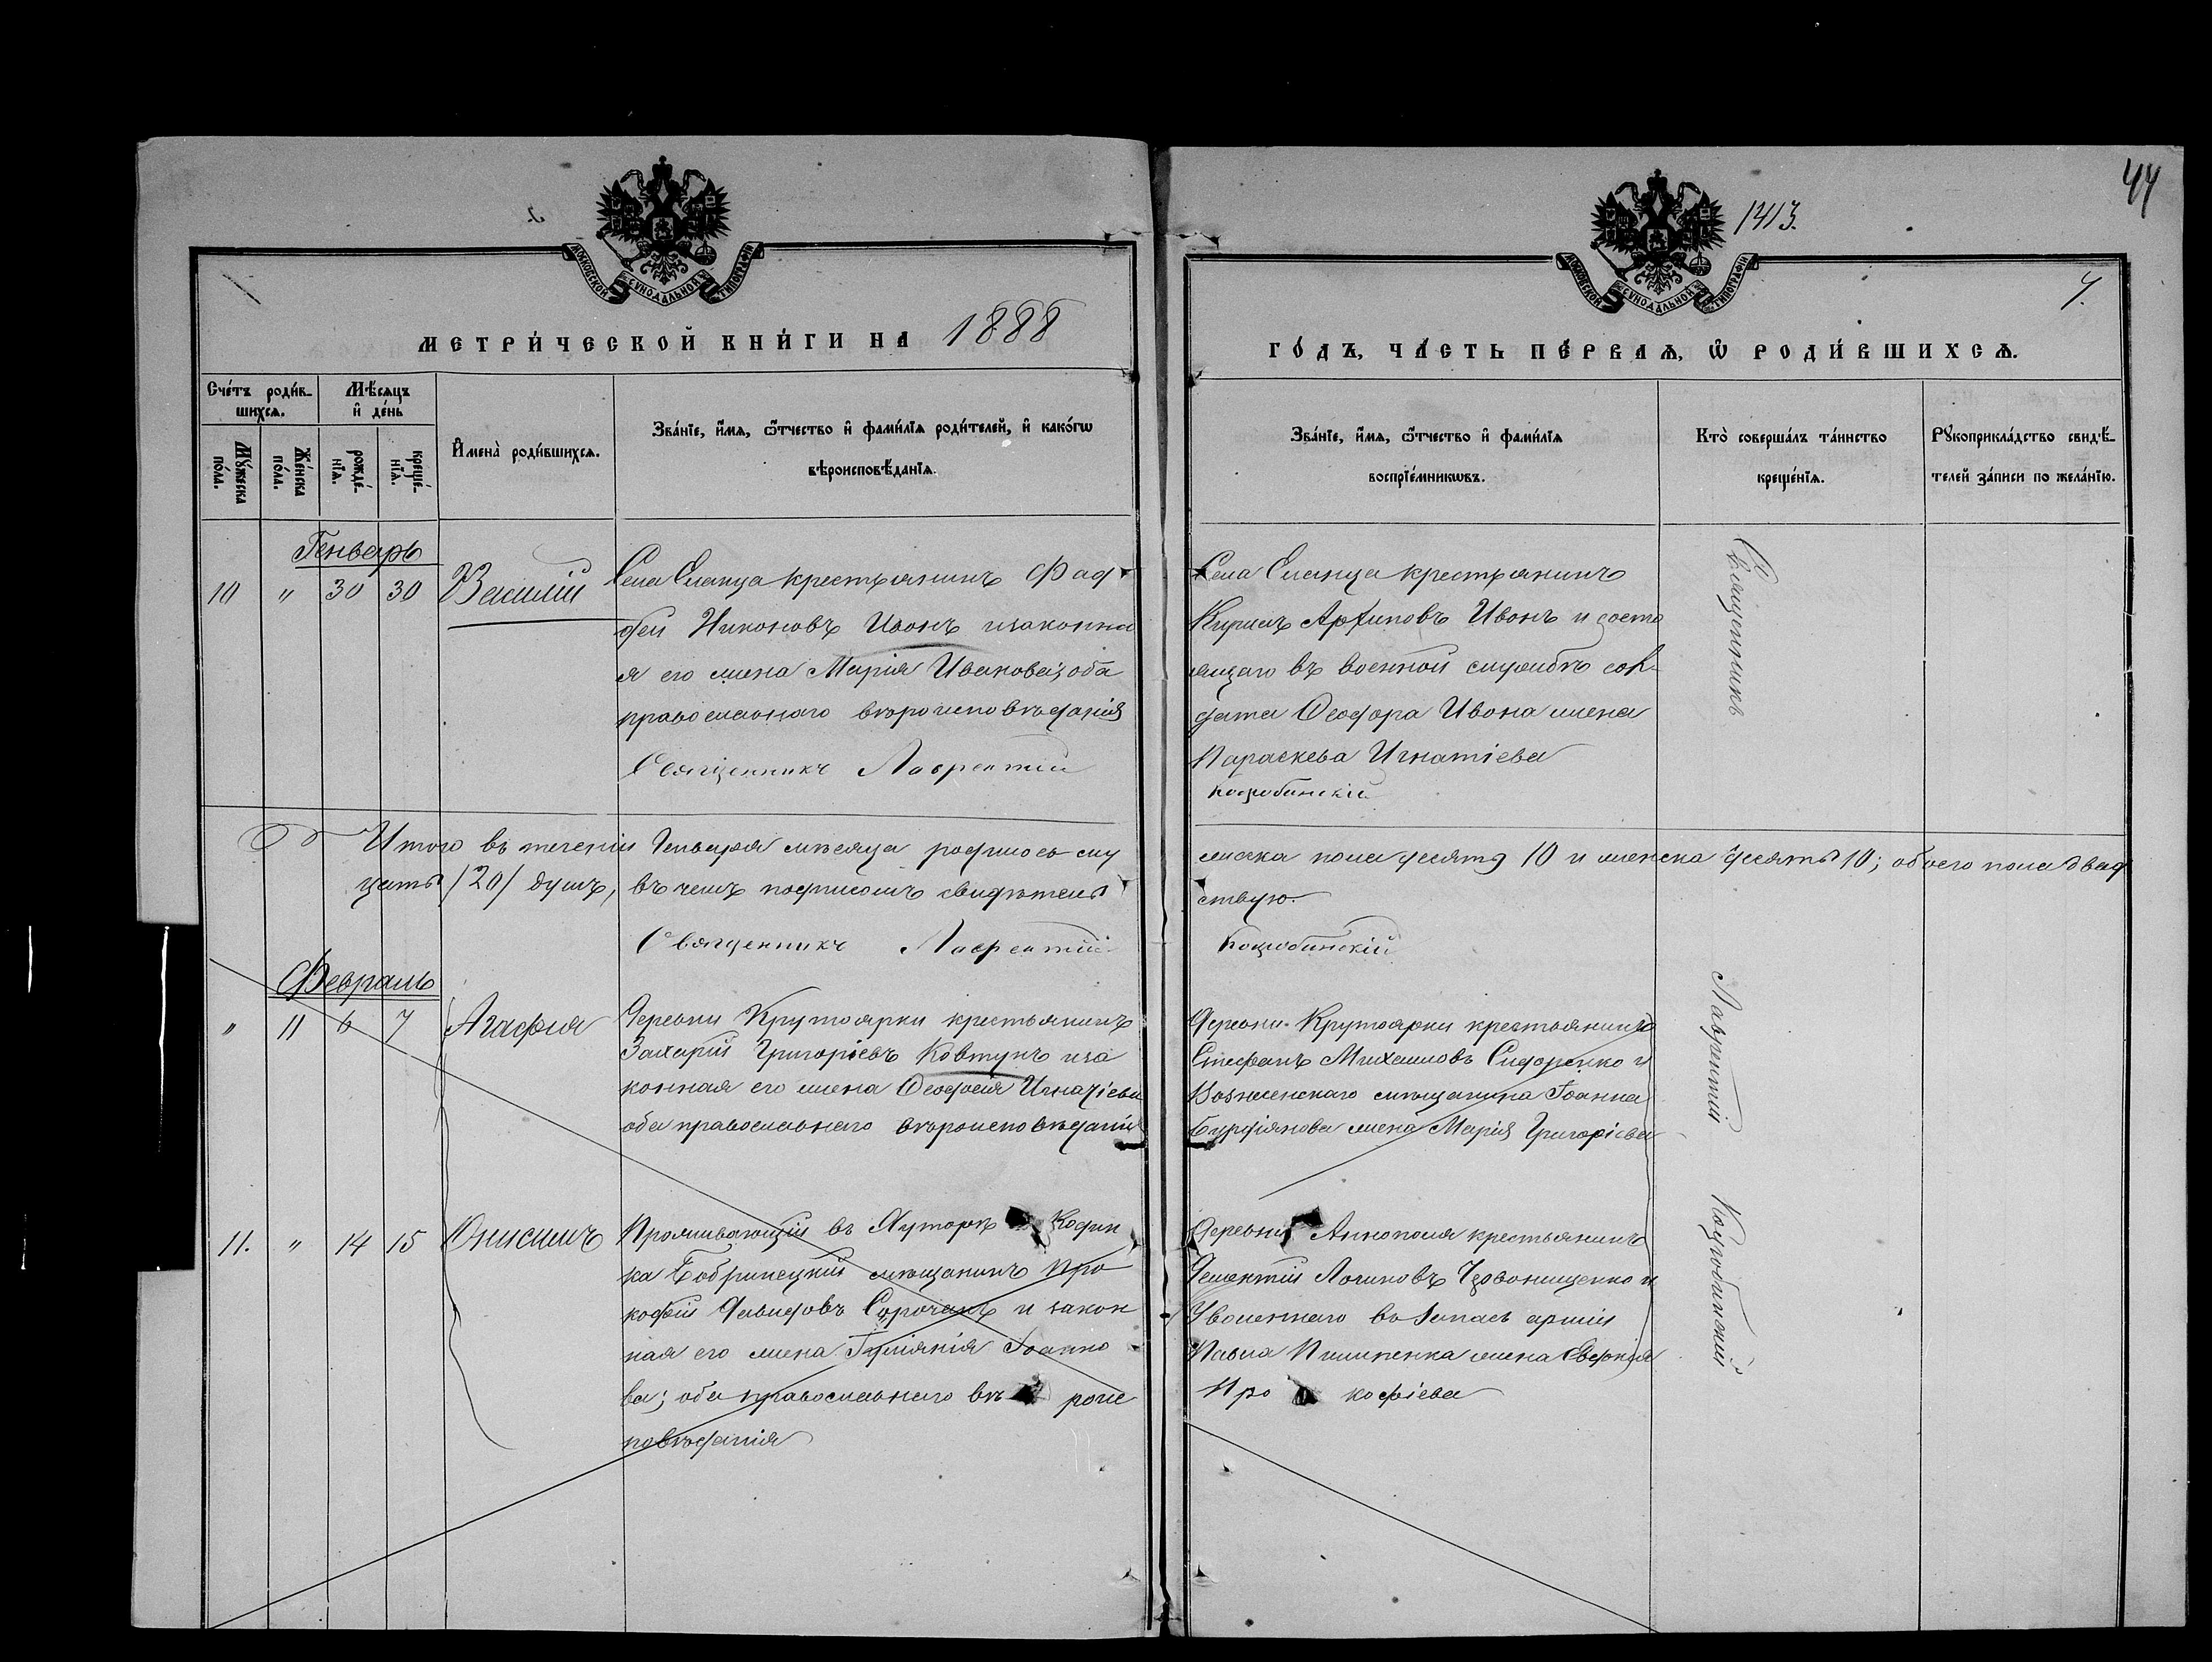 44
1413.
МОСКОВСКОЙ СѴНОДАЛЬНОЙ ТИПОГРАФІИ
МОСКОВСКОЙ СѴНОДАЛЬНОЙ ТИПОГРАФІИ
4.
МЕТРИ́ЧЕСКОЙ КНИ́ГИ НА 1888
ГО́ДЪ, ЧА́СТЬ ПЕ́РВАѦ, Ѡ҆ РОДИ́ВШИХСѦ.
Сче́тъ роди́в-
шихсѧ.
Мѣ́сѧцъ
и҆ де́нь
Мꙋ́жеска
по́ла.
Же́нска
по́ла.
рожде́-
нїѧ.
креще́-
нїѧ.
И҆мена̀ роди́вшихсѧ.
Зва́нїе, и҆́мѧ, ѻ҆́тчество и҆ фами́лїѧ роди́телей, и҆ како́гѡ
вѣроисповѣ́данїѧ.
Зва́нїе, и҆́мѧ, ѻ҆́тчество и҆ фами́лїѧ
воспрїе́мникѡвъ.
Кто̀ соверша́лъ та́инство
креще́нїѧ.
Рꙋкоприкла́дство свидѣ́-
телей за́писи по жела́нїю.
Генварь
10 " 30 30 Василій
Села Еланца крестьянинъ Фад
дей Никоновъ Ивонъ изаконна
я его жена Марія Иванова; оба
православнаго вѣроисповѣданія
Священникъ Лаврентій
Села Еланца крестьянинъ
Кирилъ Архиповъ Ивонъ и состо
ящаго въ военной службѣ сол-
дата Ѳеодора Ивона жена
Параскева Игнатіева
Козубинскій
Священникъ
Итого въ теченіи Генваря мѣсяца родилось му
жеска пола десять 10 и женска десять 10; обоего пола двад
цать /20/ душъ, въ чемъ подписомъ свидѣтель
ствую.
Священникъ Лаврентій
Козубинскій
Февраль
" 11 6 7 Агафія
Деревни Крутоярки крестьянинъ
Захарій Григоріевъ Ковтунъ иза
конная его жена Ѳеодосія Игнатіева
оба православнаго вѣроисповѣданія
Деревни Крутоярки крестьянинъ
Стефанъ Михаиловъ Сидоренко и
Вознесенскаго мѣщанина Іоанна
жена Марія Григоріева
Лаврентій
11. " 14 15 Онисимъ
Проживающій въ Хуторѣ Кодин
ка Бобринецкій мѣщанинъ Про
кофій Давидовъ Сорочанъ и закон
ная его жена Іуліянія Іоанно
ва; оба православнаго вѣ роис
повѣданія
Деревни Аннополя крестьянинъ
Леонтій Логиновъ и
Уволеннаго въ Запасъ арміи
Павла Пилипенка жена Евдокія
Про кофіева
Козубинскій